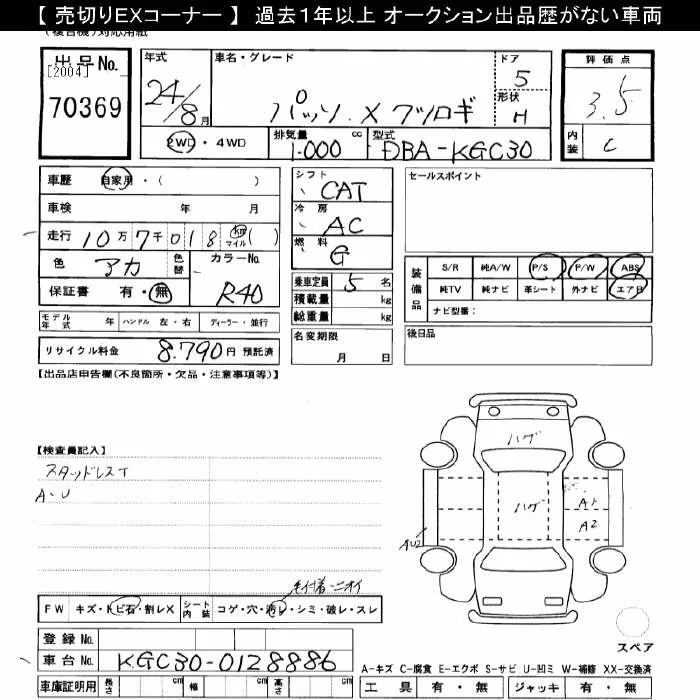 【 売切りEXコーナー 】 過去１年以上 オークション出品歴がない車両
出品No.
[2004]
70369
年式
24/8月
車名・グレード
パッソ X クツロギ
ドア
5
形状
H
評価点
3.5
内装
C
2WD・4WD
排気量
1.000 cc
型式
DBA-KGC30
車歴 自家用・( )
車検 年 月
走行 10万7千018 km マイル ( )
色 アカ 色替 カラーNo. R40
保証書 有・無
モデル年式 年 ハンドル 左・右 ディーラー・並行
リサイクル料金 8.790円 預託済
シフト CAT
冷房 AC
燃料 G
乗車定員 5名
積載量 kg
総重量 kg
名変期限
月 日
セールスポイント
装備品 S/R 純A/W P/S P/W ABS
純TV 純ナビ 革シート 外ナビ エアB
ナビ型番：
後日品
【出品店申告欄(不良箇所・欠品・注意事項等)】
【検査員記入】
スタッドレスT
A・U
毛付着・ニオイ
FW キズ・トビ石・割レX シート内装 コゲ・穴・汚レ・シミ・破レ・スレ
登録No.
車台No. KGC30-0128886
車庫証明用 長さ cm 幅 cm 高さ cm
ハゲ
ハゲ
A1
A2
AU2
スペア
A-キズ C-腐食 E-エクボ S-サビ U-凹ミ W-補修 XX-交換済
工具 有・無 ジャッキ 有・無